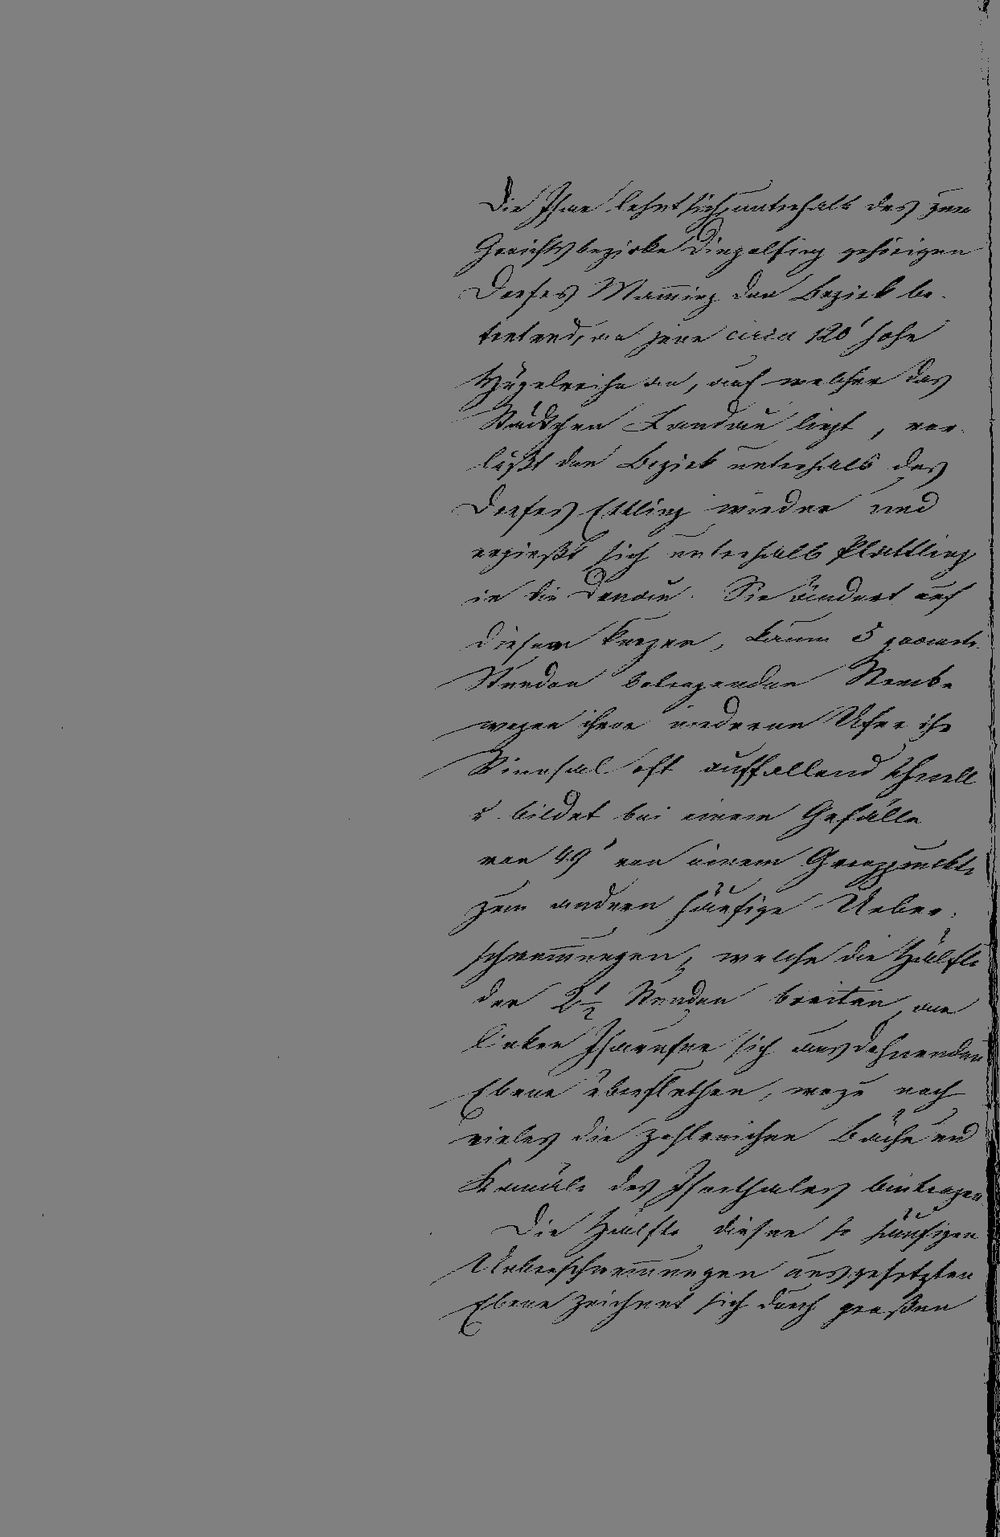 Die Isar lehnt sich, unterhalb des zum
Gerichtsbezirke Dingolfing gehörigen
Dorfes Mam̄ing den Bezirk be-
tretend, an jene circa 120' hohe
Hügelreihe an, auf welcher das
Städtchen Landau liegt, ver-
läßt den Bezirk unterhalb des
Dorfes Ettling wieder und
ergießt sich unterhalb Plattling
in die Donau. Sie ändert auf
diesem kurzen, kaum 5
Stunden betragenden Strecke
wegen ihrer niederen Ufer ihr
Rinnsal oft auffallend schnell
u. bildet bei einem Gefälle
von 49' von einem Grenzpunkte
zum andern häufige Ueber-
schwem̄ungen, welche die Hälfte
der 2 1/2 Stunden breiten, am
linken Isarufer sich ausdehnenden
Ebene überfluthen, wozu noch
vieles die zahlreichen Bäche und
Kanäle des Isarthales beitragen.
Die Hälfte dieser so häufigen
Ueberschwem̄ungen ausgesetzten
Ebene zeichnet sich durch großen